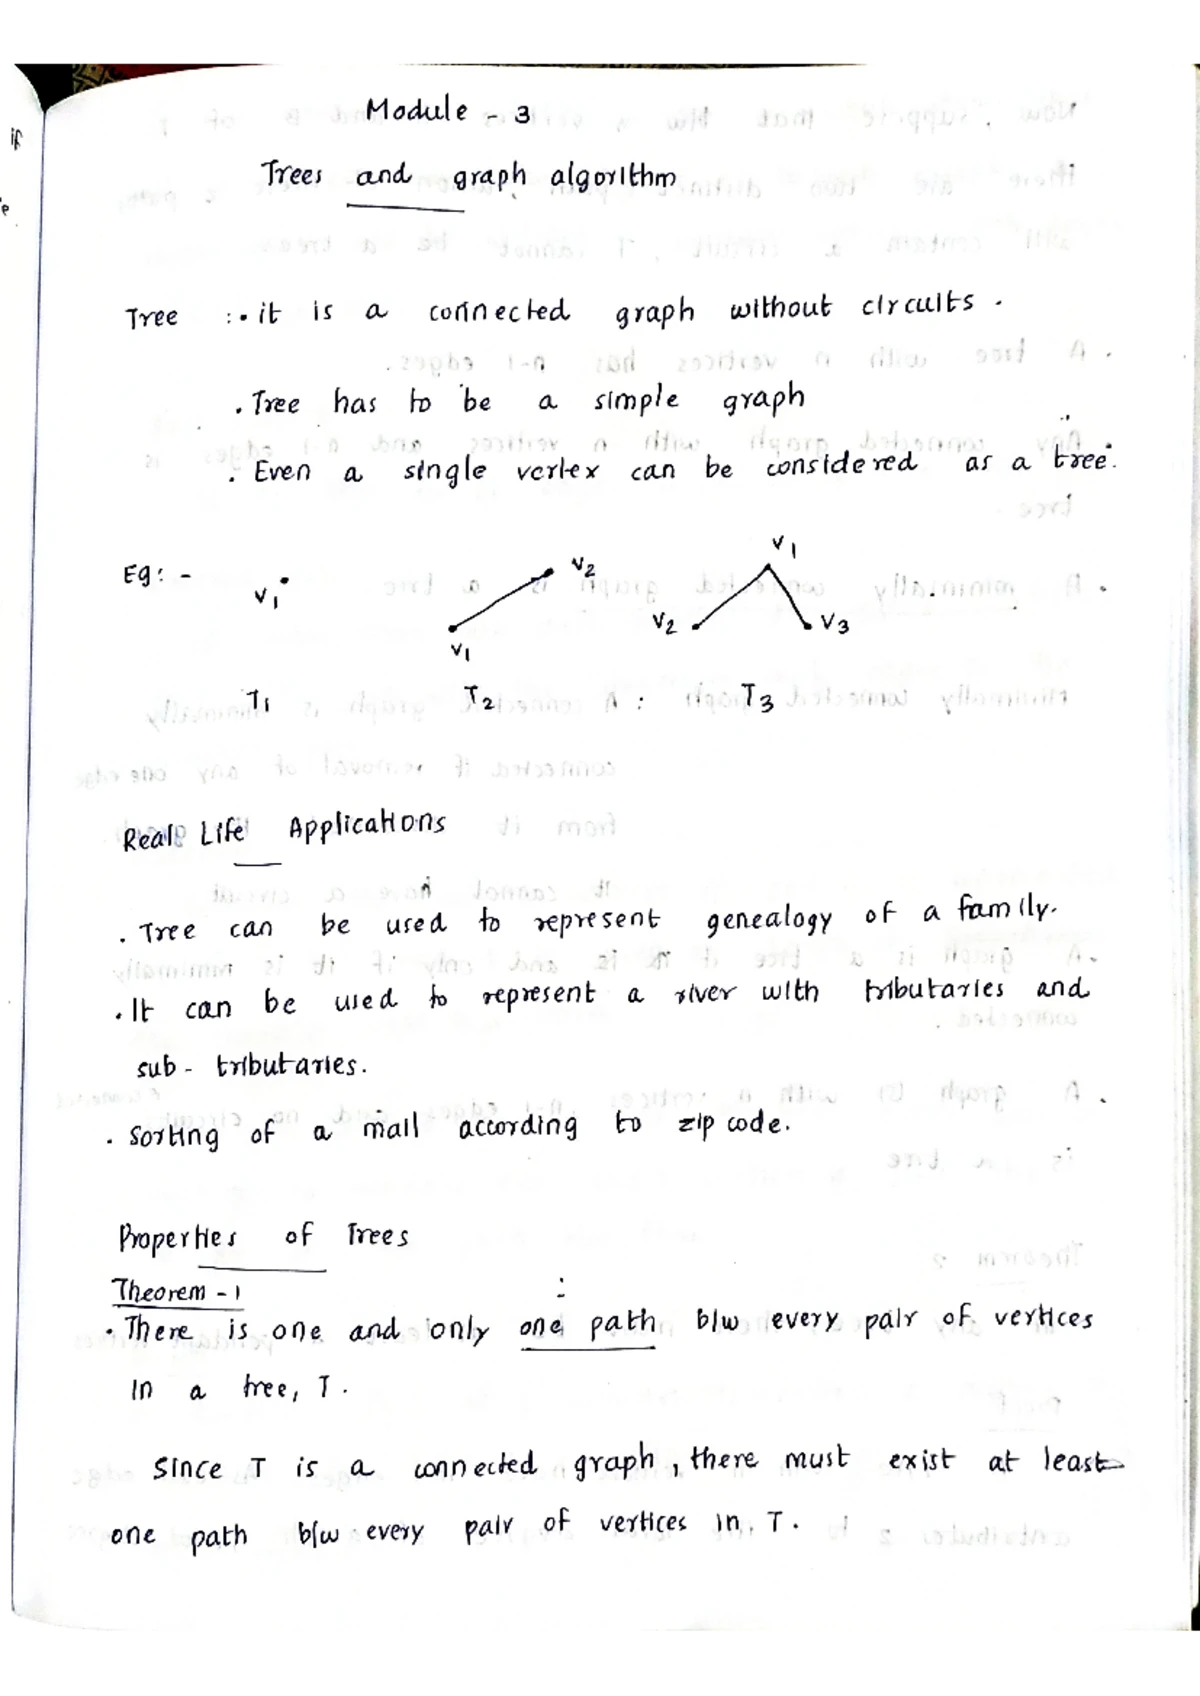 Module - 3
Trees and graph algorithm
Tree :• it is a connected graph without circuits.
• Tree has to be a simple graph
• Even a single vertex can be considered as a tree.
Eg: -
V1
V2
V1
V1
V2
V3
T1 T2 T3
Real Life Applications
• Tree can be used to represent genealogy of a family.
• It can be used to represent a river with tributaries and
sub - tributaries.
• Sorting of a mail according to zip code.
Properties of Trees
Theorem - 1
• There is one and only one path b/w every pair of vertices
in a tree, T.
Since T is a connected graph, there must exist at least
one path b/w every pair of vertices in T.